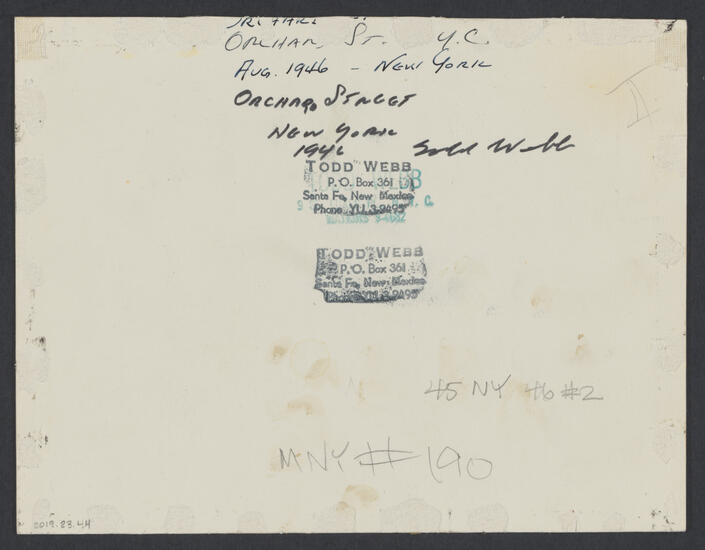 ORCHAR. ST. Y.C.
AUG. 1946 – NEW YORK
ORCHARD STREET
NEW YORK
1946 Todd Webb
TODD WEBB
P. O. Box 361
Santa Fe, New Mexico
Phone YU. 3-9495
TODD WEBB
P. O. Box 361
Santa Fe, New Mexico
45 NY 46 #2
MNY #190
2019.23.44
II